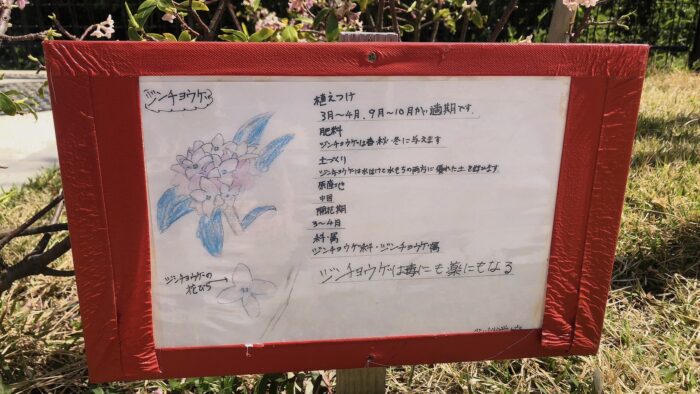 ジンチョウゲ
植えつけ
3月〜4月、9月〜10月が適期です。
肥料
ジンチョウゲは春・秋・冬に与えます
土づくり
ジンチョウゲは水はけと水もちの両方に優れた土を好みます
原産地
中国
開花期
3〜4月
科・属
ジンチョウゲ科・ジンチョウゲ属
ジンチョウゲは毒にも薬にもなる
ジンチョウゲの
花びら